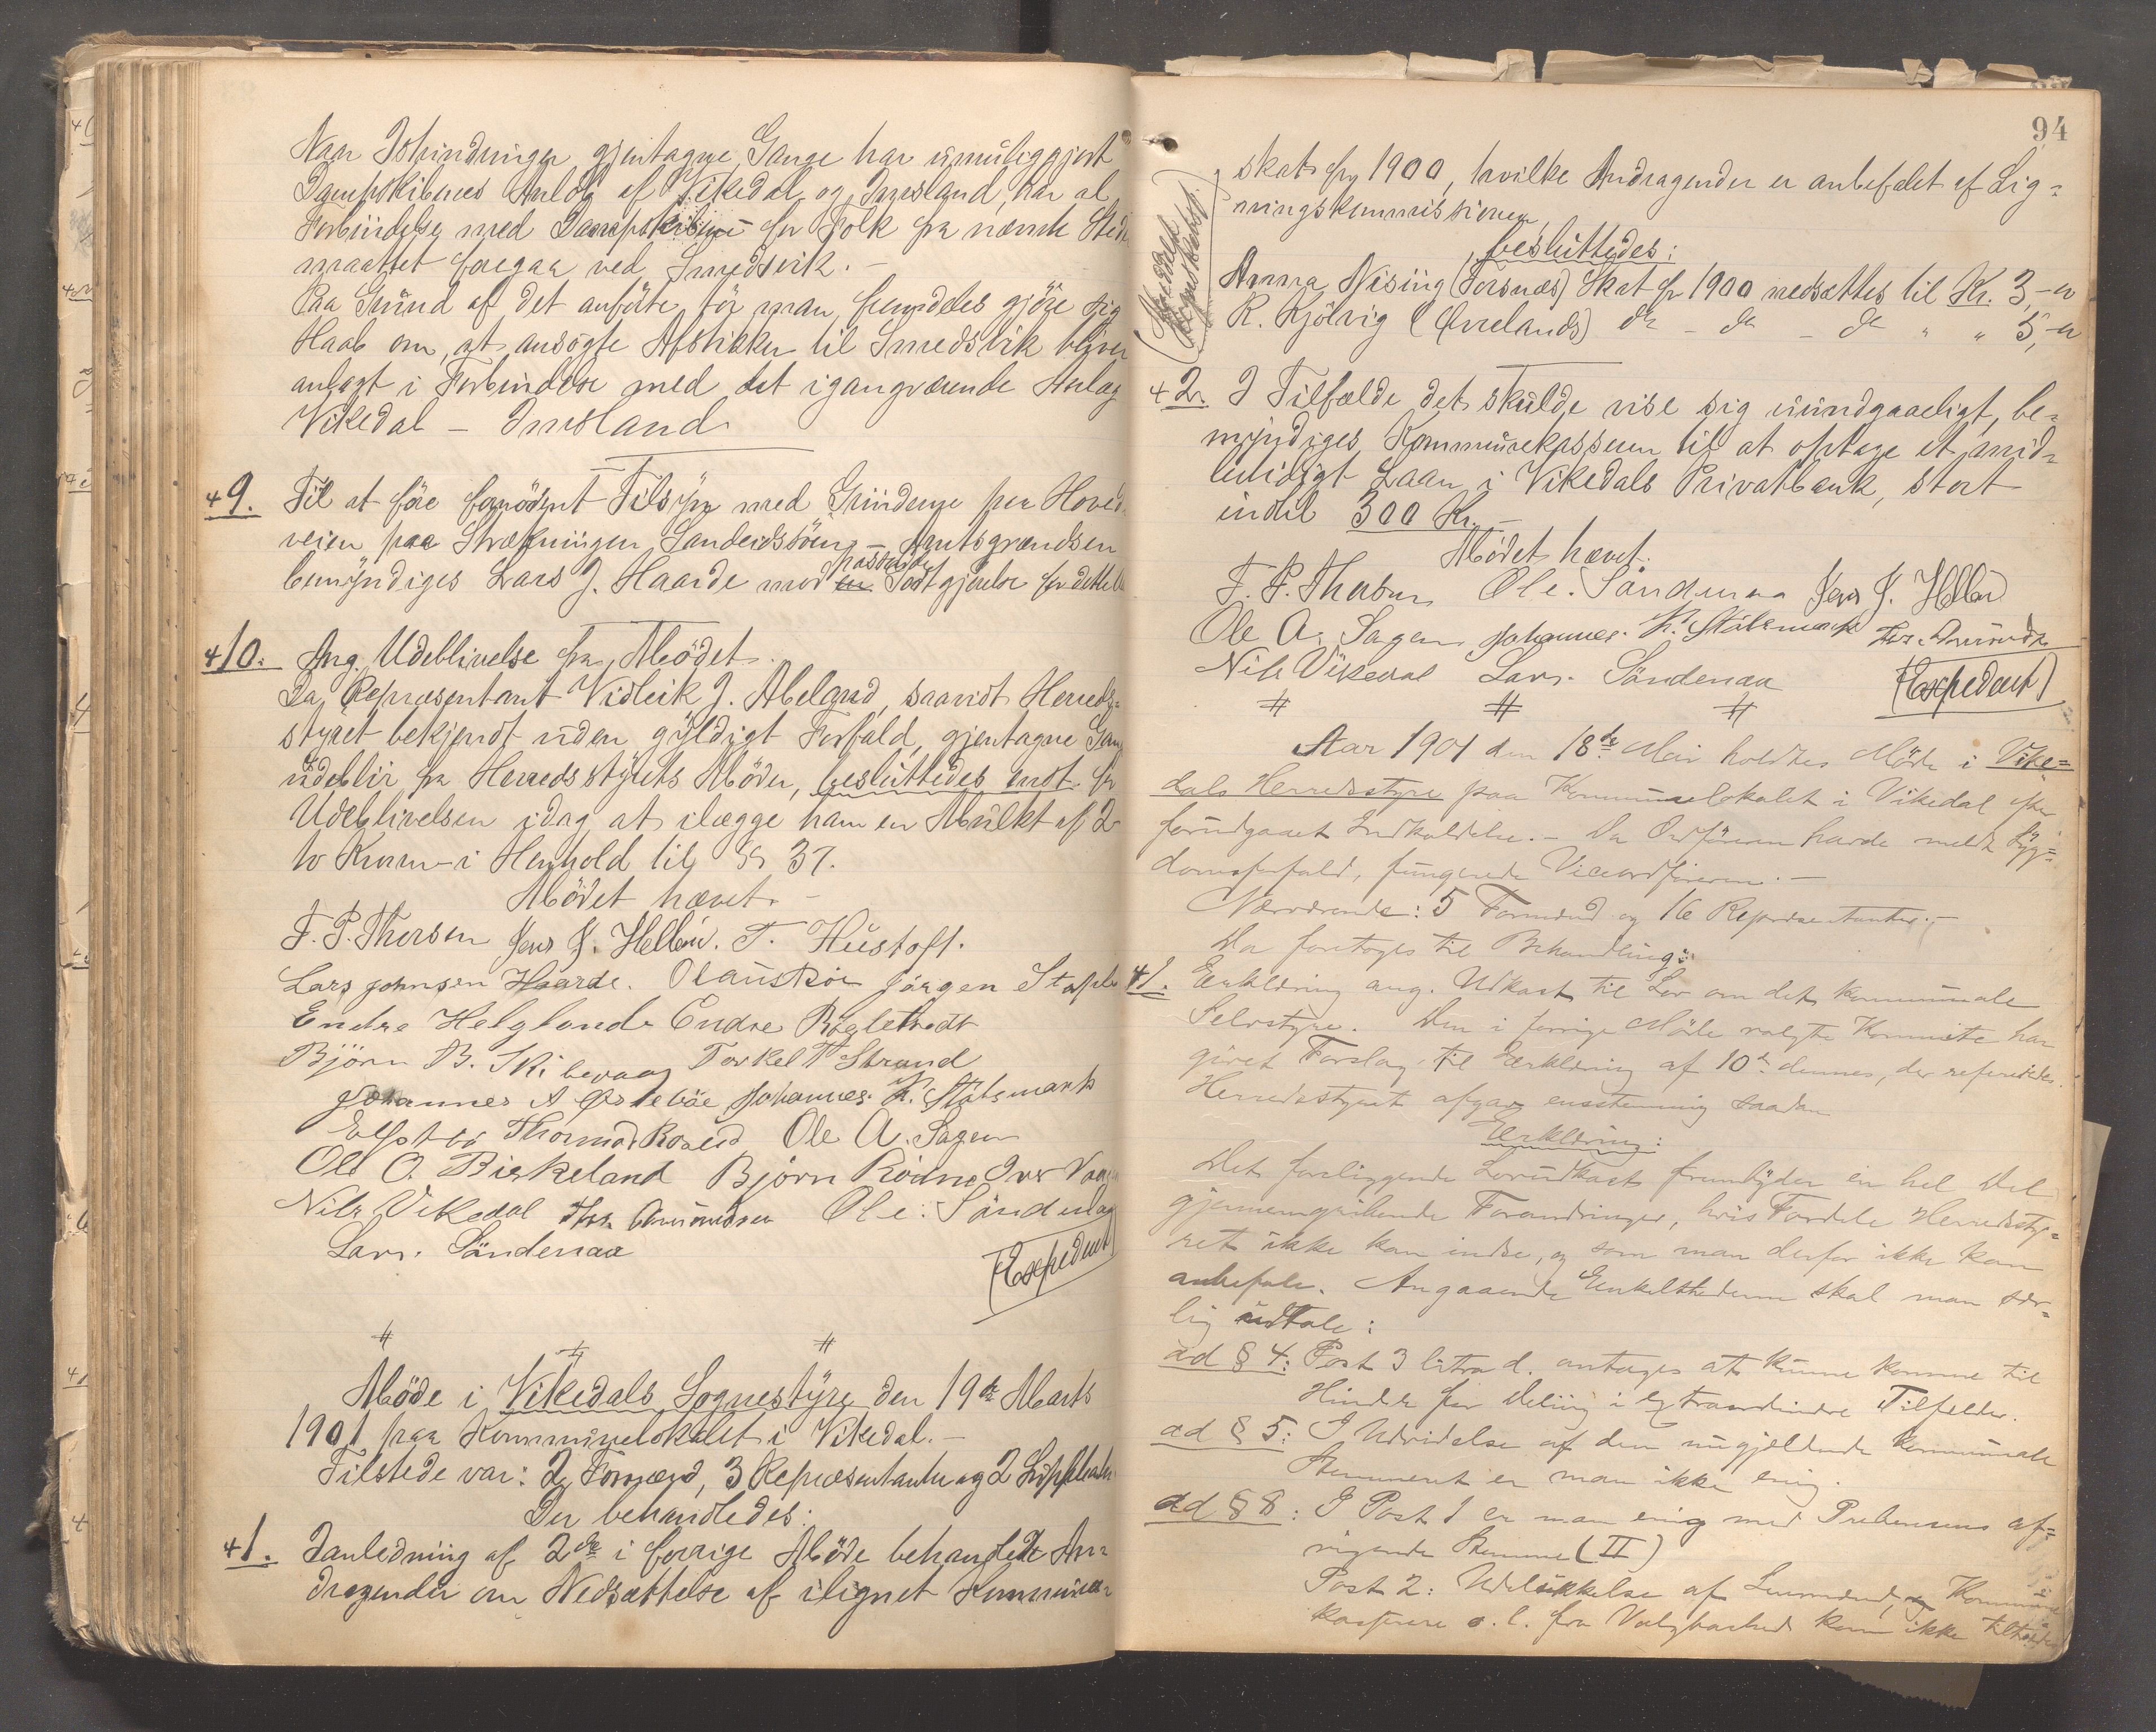 Naar Ishindringer gjentagne Gange har umuliggjort
Dampskibenes Anløb af Vikedal og Imsland, har al
Forbindelse med Dampskibene for Folk fra nævnte Steder
maattet foregaa ved Smedsvik. –
Paa Grund af det anførte tør man fremdeles gjøre sig
Haab om, at ansøgte Afstikker til Smedsvik bliver
anlagt i Forbindelse med det igangværende Anlæg
Vikedal – Imsland
+9. Til at føre fornødent Tilsyn med Grinderne paa Hoved-
veien paa Strækningen Sandeidssøen – Amtsgrændsen
bemyndiges Lars J. Haarde mod passende Godtgjørelse for dette
+10. Ang. Udeblivelse fra Mödet.
Da Repræsentant Vidleik J. Abelgrud, saavidt Herreds-
styret bekjendt uden gyldigt Forfald, gjentagne Gange
udeblir fra Herredsstyrets Møder, besluttedes endt. for
Udeblivelsen idag at ilægge ham en Mulkt af 2
to Kroner i Henhold til § 37.
Mödet hævet. –
F. P. Thorsen Jens J. Helleie. T. Hustoft.
Lars Johnsen Haarde. Ola Auskøe Jørgen Stople
Endre Helgland Endre Bøgletvedt
Björn B. Skibevaag Torkel T Strand
Johannes A Østebøe Johannes K. Stålsmark
Thormod Roaled Ole A. Sagen
Ole O. Birkeland Bjørn Rödne Iver Vaage
Nils Vikedal Ths. Amundsen Ole. Søndenaa
Lars. Söndenaa
(Expederet)
# # #
Möde i Vikedals Sognestyre den 19de Marts
1901 paa Kommunelokalet i Vikedal. –
Tilstede var: 2 Formænd, 3 Repræsentanter og 2 Suppleanter
Der behandledes:
+1. I anledning af 2de i forrige Möde behandlede An-
dragender om Nedsættelse af ilignet Kommune-
94
skat for 1900, hvilke Andragender er anbefalet af Lig-
ningskommissionen,
besluttedes:
Anna Nising (Forsnæs) Skat for 1900 nedsættes til Kr. 3,-
R. Kjölvig (Ørrelands) do - do - do " " 5,-
+2. I Tilfælde det skulde vise sig uundgaaeligt, be-
myndiges Kommunekassereren til at optage et mid-
lertidigt Laan i Vikedals Privatbank, stort
indtil 300 Kr. –
Mödet hævet.
F. P. Thorsen Ole. Söndenaa Jens J. Helleie
Ole A. Sagen Johannes. K. Stålsmark Ths. Amunds
Nils Vikedal Lars. Söndenaa (Expederet)
# # #
Aar 1901 den 18de Mai holdtes Møde i Vike-
dals Herredsstyre paa Kommunelokalet i Vikedal efter
forudgaaet Indkaldelse. – Da Ordføreren havde meldt Syg-
domsforfald, fungerede Viceordføreren. –
Nærværende: 5 Formænd og 16 Repræsentanter. –
Da foretoges til Behandling:
+1. Erklæring ang. Udkast til Lov om det kommunale
Selvstyre. Den i forrige Møde valgte Komite har
givet Forslag til Erklæring af 10de dennes, der refereredes.
Herredsstyret afgav enstemmig saadan
Erklæring:
Det foreliggende Lovudkast frembyder en hel Del
gjennemgribende Forandringer, hvis Fordele Herredssty-
ret ikke kan indse, og som man derfor ikke kan
anbefale. Angaaende Enkelthederne skal man sær-
lig udtale:
ad § 4: Post 3 litra d. antages at kunne komme til
Hinder for Deling i extraordinære Tilfelder.
ad § 5: I Udvidelse af den nugjeldende kommunale
Stemmeret er man ikke enig.
ad § 8: I Post 1 er man enig med Prebensens af-
vigende Stemme (II)
Post 2: Udelukkelse af Lensmænd, og Kommune
kasserere o. l. fra Valgbarhed kan ikke